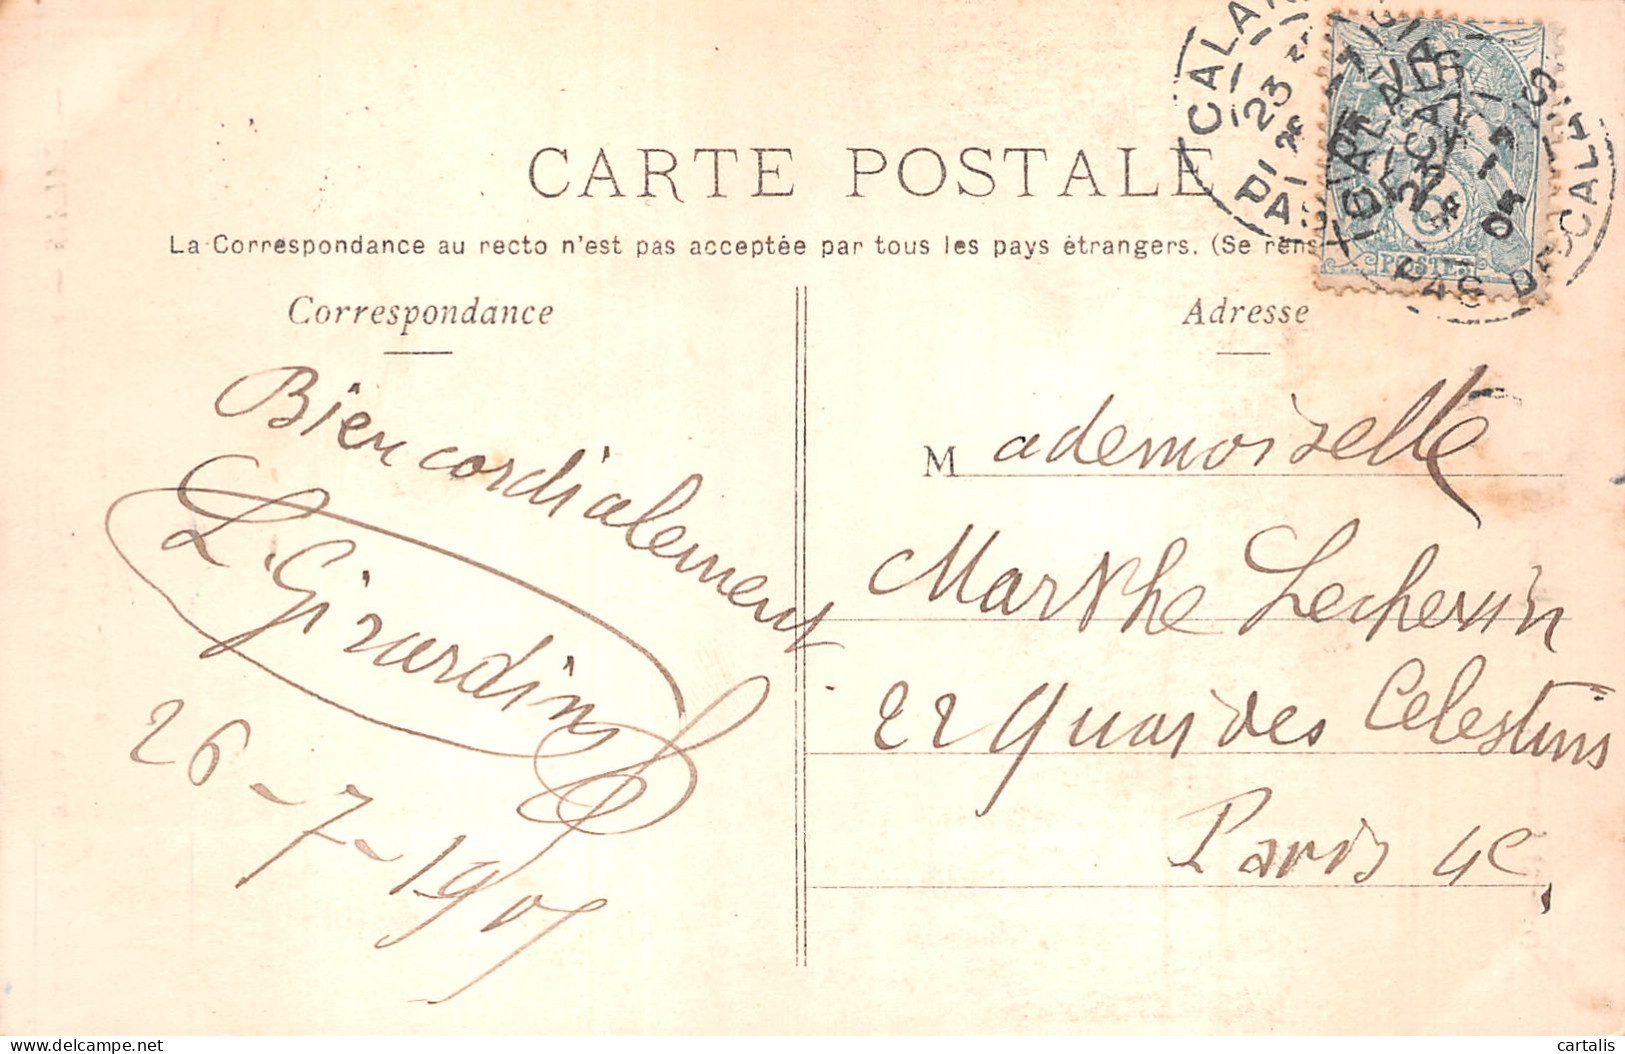 CARTE POSTALE
La Correspondance au recto n'est pas acceptée par tous les pays étrangers. (Se rens
Correspondance
Bien cordialement
L. Girardin
26-7-1905
Adresse
Mademoiselle
Marthe Lechevin
22 Quai des Celestins
Paris 4e
POSTES
PAS DE CALAIS
cartalis
delcampe.net